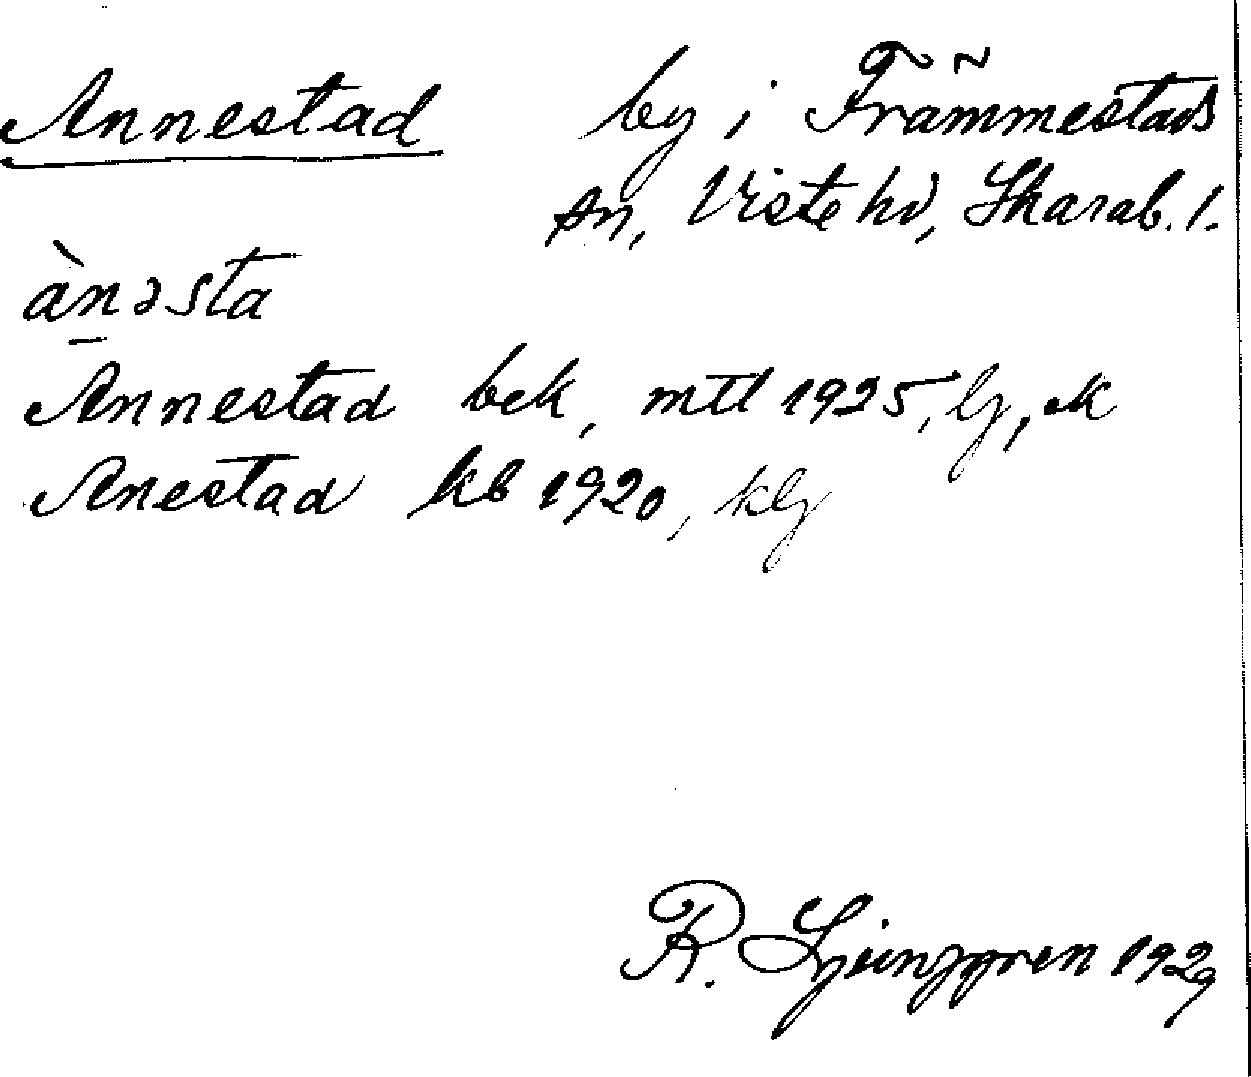 Annestad by i Främmestads
sn, Viste hd, Skarab. l.
ànəsta
Annestad bek, mtl 1925, lj, ek
Anestad kb 1920, klj
R. Ljunggren 1929